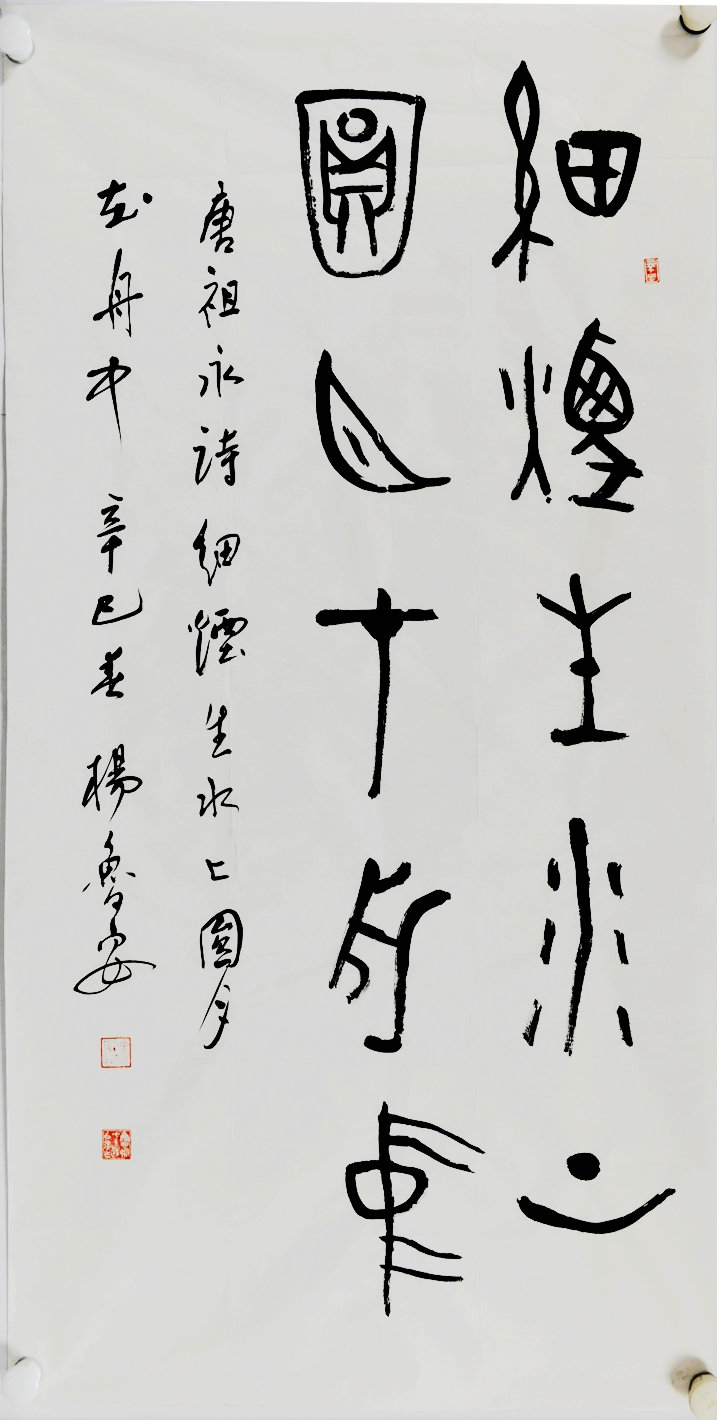 細煙生水上
圓月在舟中
唐祖永詩細煙生水上圓月
在舟中 辛巳春 楊魯安